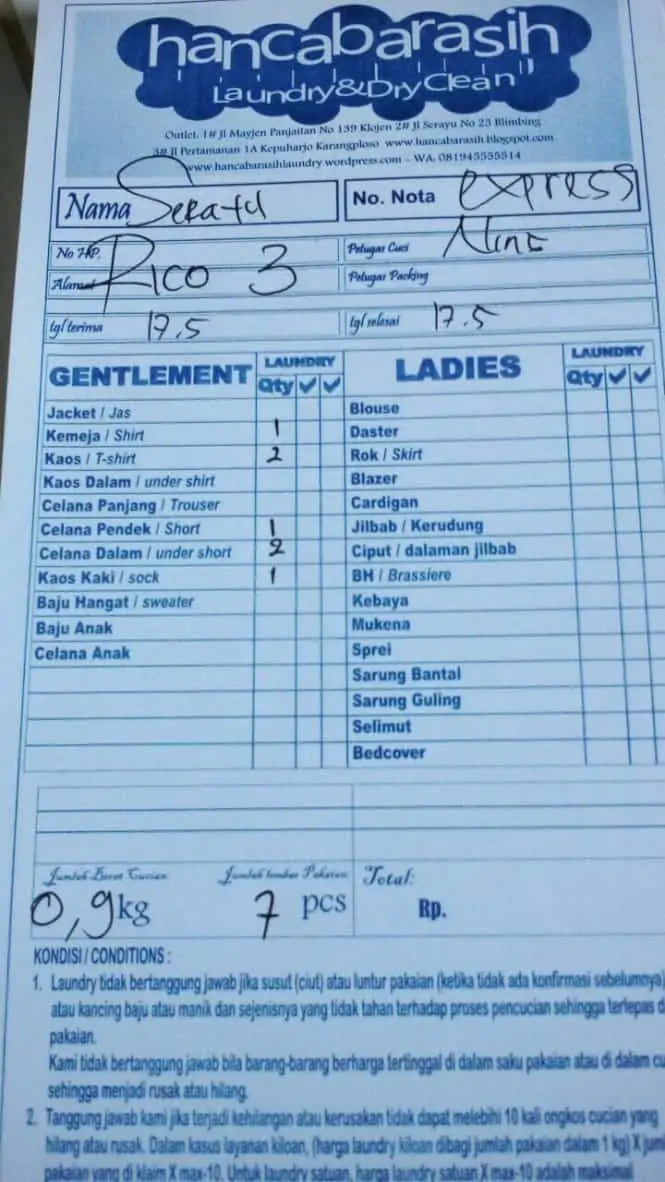 hancabarasih
Laundry&DryClean
Outlet. 1# Jl Mayjen Panjaitan No 139 Klojen 2# Jl Serayu No 25 Blimbing
3# Jl Pertamanan 1A Kepuharjo Karangploso www.hancabarasih.blogspot.com
www.hancabarasihlaundry.wordpress.com - WA. 081945555514
Nama No. Nota express
No HP. Petugas Cuci
Alamat Rico 3 Petugas Packing
tgl terima 17.5 tgl selesai 17.5
GENTLEMENT LAUNDRY Qty LADIES LAUNDRY Qty
Jacket / Jas Blouse
Kemeja / Shirt 1 Daster
Kaos / T-shirt 2 Rok / Skirt
Kaos Dalam / under shirt Blazer
Celana Panjang / Trouser Cardigan
Celana Pendek / Short 1 Jilbab / Kerudung
Celana Dalam / under short 2 Ciput / dalaman jilbab
Kaos Kaki / sock 1 BH / Brassiere
Baju Hangat / sweater Kebaya
Baju Anak Mukena
Celana Anak Sprei
Sarung Bantal
Sarung Guling
Selimut
Bedcover
Jumlah Berat Cucian Jumlah Pakaian Total:
0,9 kg 7 pcs Rp.
KONDISI / CONDITIONS :
1. Laundry tidak bertanggung jawab jika susut (ciut) atau luntur pakaian (ketika tidak ada konfirmasi sebelumnya)
atau kancing baju atau manik dan sejenisnya yang tidak tahan terhadap proses pencucian sehingga terlepas
pakaian.
Kami tidak bertanggung jawab bila barang-barang berharga tertinggal di dalam saku pakaian atau di dalam
sehingga menjadi rusak atau hilang.
2. Tanggung jawab kami jika terjadi kehilangan atau kerusakan tidak dapat melebihi 10 kali ongkos cucian yang
hilang atau rusak. Dalam kasus layanan kiloan, (harga laundry kiloan dibagi jumlah pakaian dalam 1 kg) X
pakaian yang di klaim X max-10. Untuk laundry satuan, harga laundry satuan X max-10 adalah maksimal